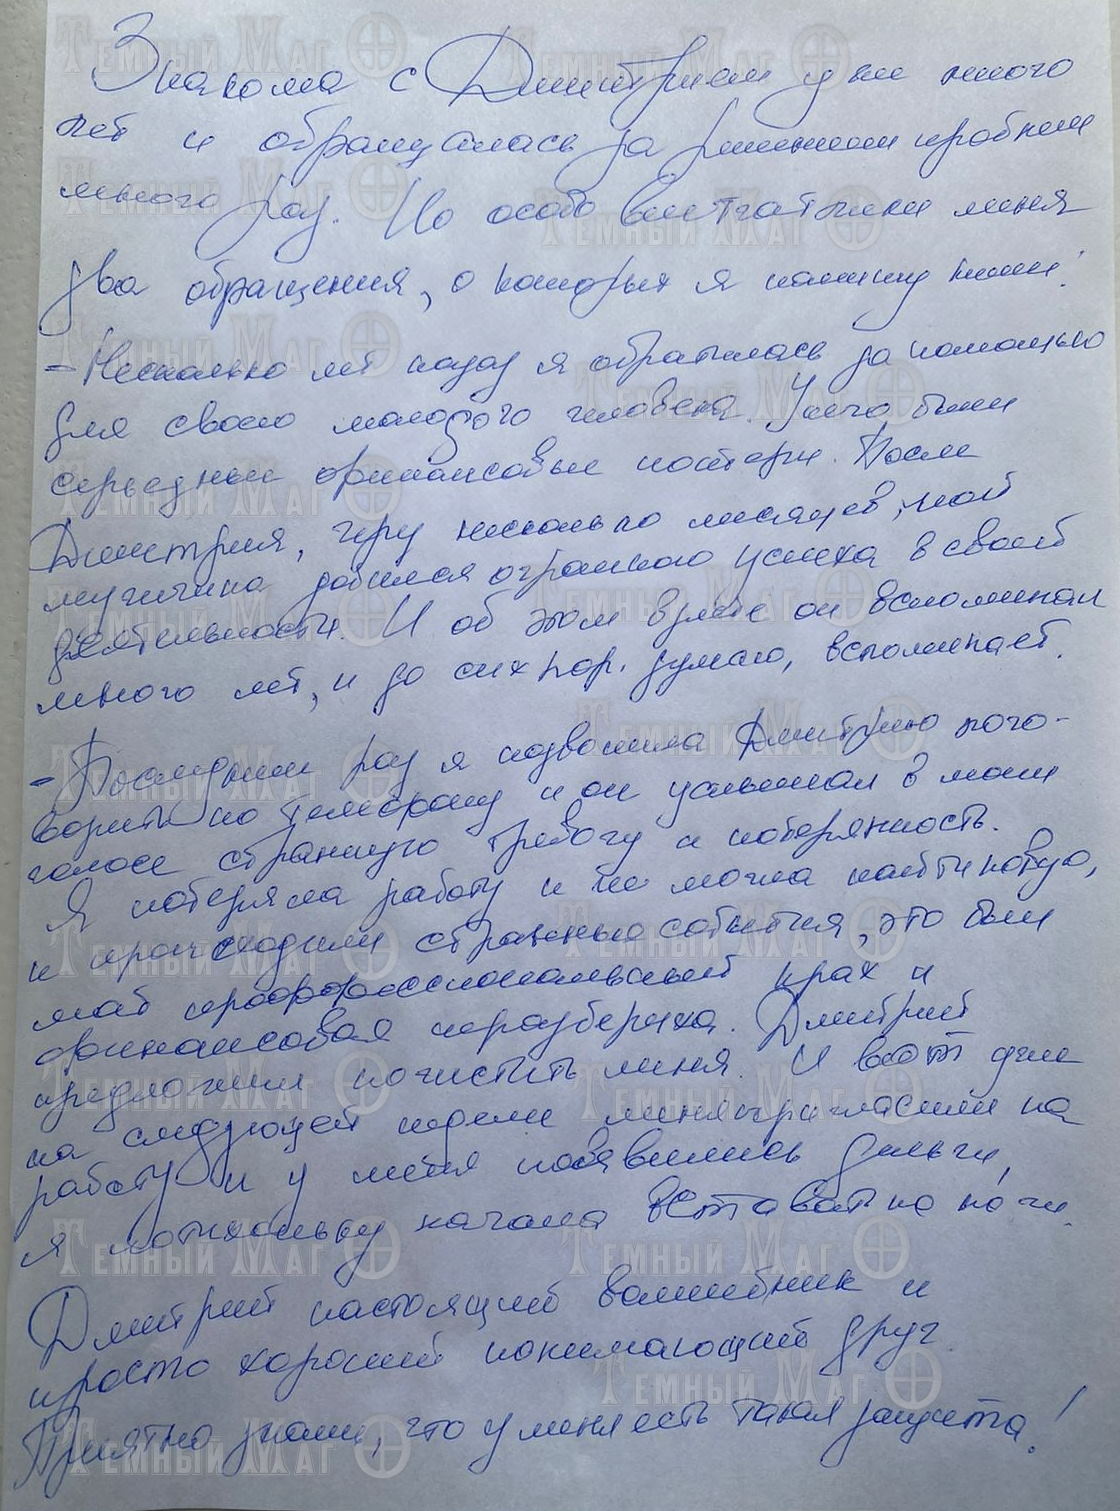 Знакома с Дмитрием уже много
лет и обращалась за решением проблем
много раз. Но особо впечатлили меня
два обращения, о которых я напишу ниже:
- Несколько лет назад я обратилась за помощью
для своего молодого человека. У него были
серьезные финансовые потери. После
Дмитрия, через несколько месяцев, мой
мужчина добился огромного успеха в своей
деятельности. И об этом взлете он вспоминал
много лет, и до сих пор, думаю, вспоминает.
- Последний раз я позвонила Дмитрию пого-
ворить по телефону и он услышал в моем
голосе странную тревогу и потерянность.
Я потеряла работу и не могла найти новую,
и происходили странные события, это был
мой профессиональный крах и
финансовая неразбериха. Дмитрий
предложил почистить меня. И вот уже
на следующей неделе меня пригласили на
работу и у меня появились деньги,
я потихоньку начала вставать на ноги.
Дмитрий настоящий волшебник и
просто хороший понимающий друг.
Приятно знать, что у меня есть такая защита!
Темный Маг